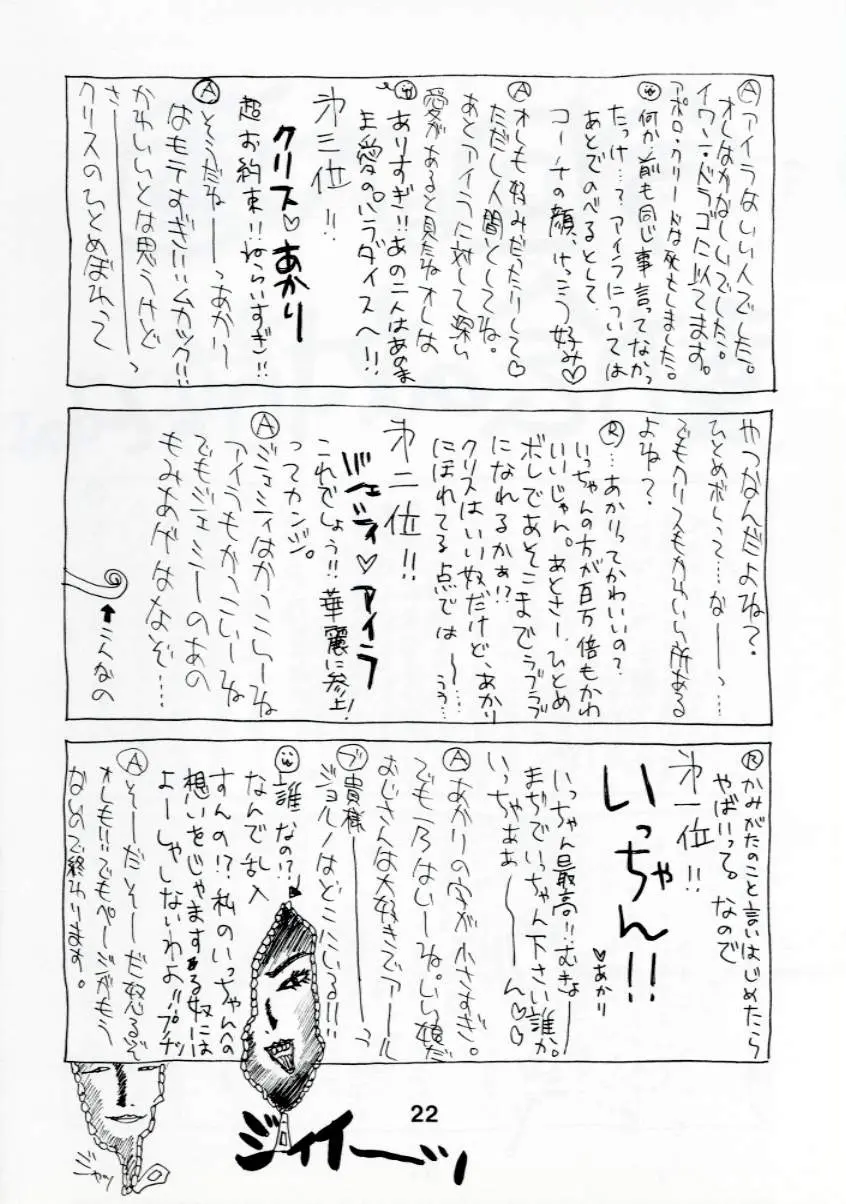 Ⓐアイラはいい人でした。
オレはかなしいでした。
イワン・ドラゴに似てます。
アポロ・クリードは死亡しました。
何か前も同じ事言ってなかっ
たっけ…?アイラについては
あとでのべるとして
コーナの顔、けっこう好み♡
Ⓐオレも好みだったりして♡
ただし人間としてね。
あとアイラに対して深い
愛があると見たねオレは
ありすぎ!!あの二人はあのまま
愛のパラダイスへ!!
第三位!!
クリス♡あかり
超お約束!!ねらいすぎ!!
Ⓐそうだねーーっあかり
はもてすぎ!!ムカック!!
かわいいとは思うけど
さーーーーっ
クリスのひとめぼれって
やつなんだよね?
ひとめボレって…なーーっ…
でもクリスもかわいい所ある
よね?
Ⓡ…あかりってかわいいの?
いっちゃんの方が百万倍もかわ
いいじゃん。あとさー、ひとめ
ボレであそこまでラブラブ
になれるかぁ!?
クリスはいい奴だけど、あかり
にほれてる点では〜…ぅぅ…
第二位!!
ジェシィ♡アイラ
これでしょう!!華麗に参上!
ってカンジ。
Ⓐジェシィはかっこいーね
アイラもかっこいーね
でもジェシーのあの
もみあげはなぞ…
↑こんなの
Ⓡかみがたのこと言いはじめたら
やばいって。なので
第一位!!
いっちゃん!!
♡あかり
いっちゃん最高!!むきょー
まぢでいっちゃん下さい誰か。
いっちゃああ〜〜ん♡♡
Ⓐあかりの字が小さすぎ。
でも一乃はいーね。いい娘だ
おじさんは大好きでアール
ブ貴様ーーーーっ
ジョルノはどこにいる!!!
誰なの!?
なんで乱入
すんの!?私のいっちゃんへの
想いをじゃまする奴には
よーしゃしないわよ!!プチッ
Ⓐそーだそーだ怒るぞ
オレも!!でもページがもう
ないので終わります。
ジャッ
ジィイーッ
22